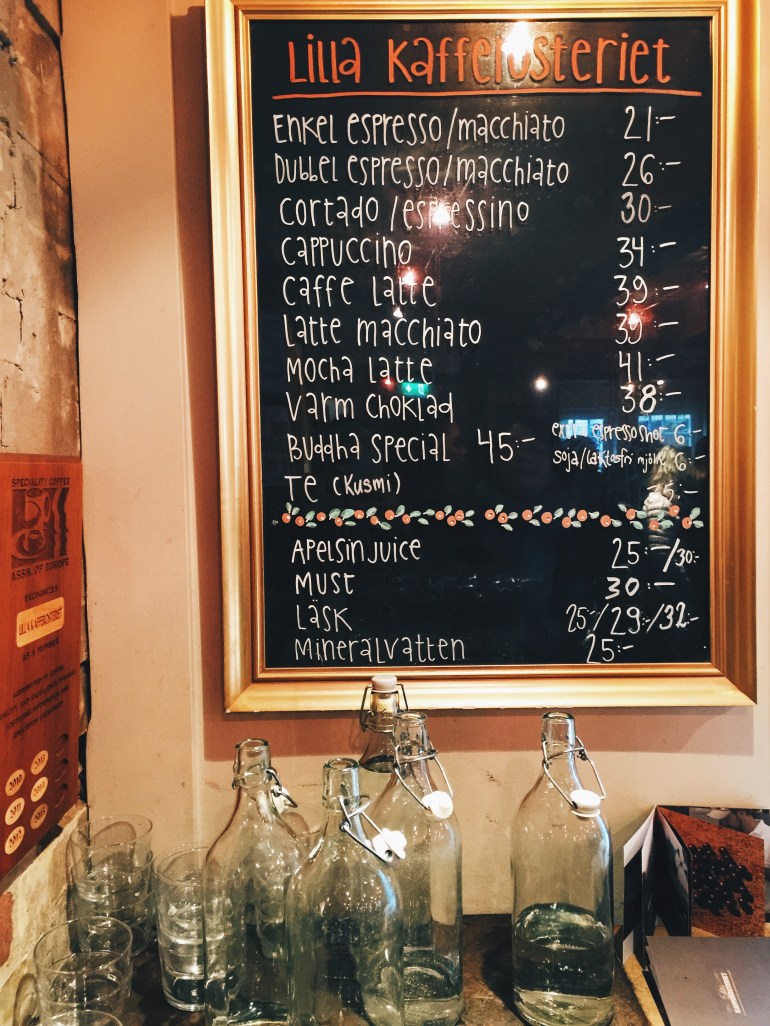 Lilla Kafferosteriet
Enkel espresso/macchiato 21:-
Dubbel espresso/macchiato 26:-
Cortado/espressino 30:-
Cappuccino 34:-
Caffe Latte 39:-
Latte macchiato 39:-
Mocha Latte 41:-
Varm Choklad 38:-
extra espresso shot 6:-
Buddha Special 45:-
soja/laktosfri mjölk 6:-
Te (Kusmi)
Apelsinjuice 25:-/30:-
Must 30:-
Läsk 25:-/29:-/32:-
Mineralvatten 25:-
SPECIALITY COFFEE
ASSN. OF EUROPE
RECOGNIZES
LILLA KAFFEROSTERIET
AS A MEMBER
2010
2011
2012
2013